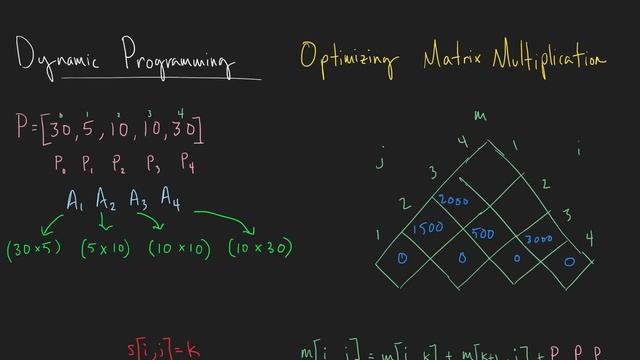 Dynamic Programming
Optimizing Matrix Multiplication
0 1 2 3 4
P=[30,5,10,10,30]
P0 P1 P2 P3 P4
A1 A2 A3 A4
(30×5) (5×10) (10×10) (10×30)
m
j 4 1 i
3 2
2 2000 3
1 1500 500 3000 4
0 0 0 0
s[i,j]=k
m[i,j]=m[i,k]+m[k+1,j]+P P P